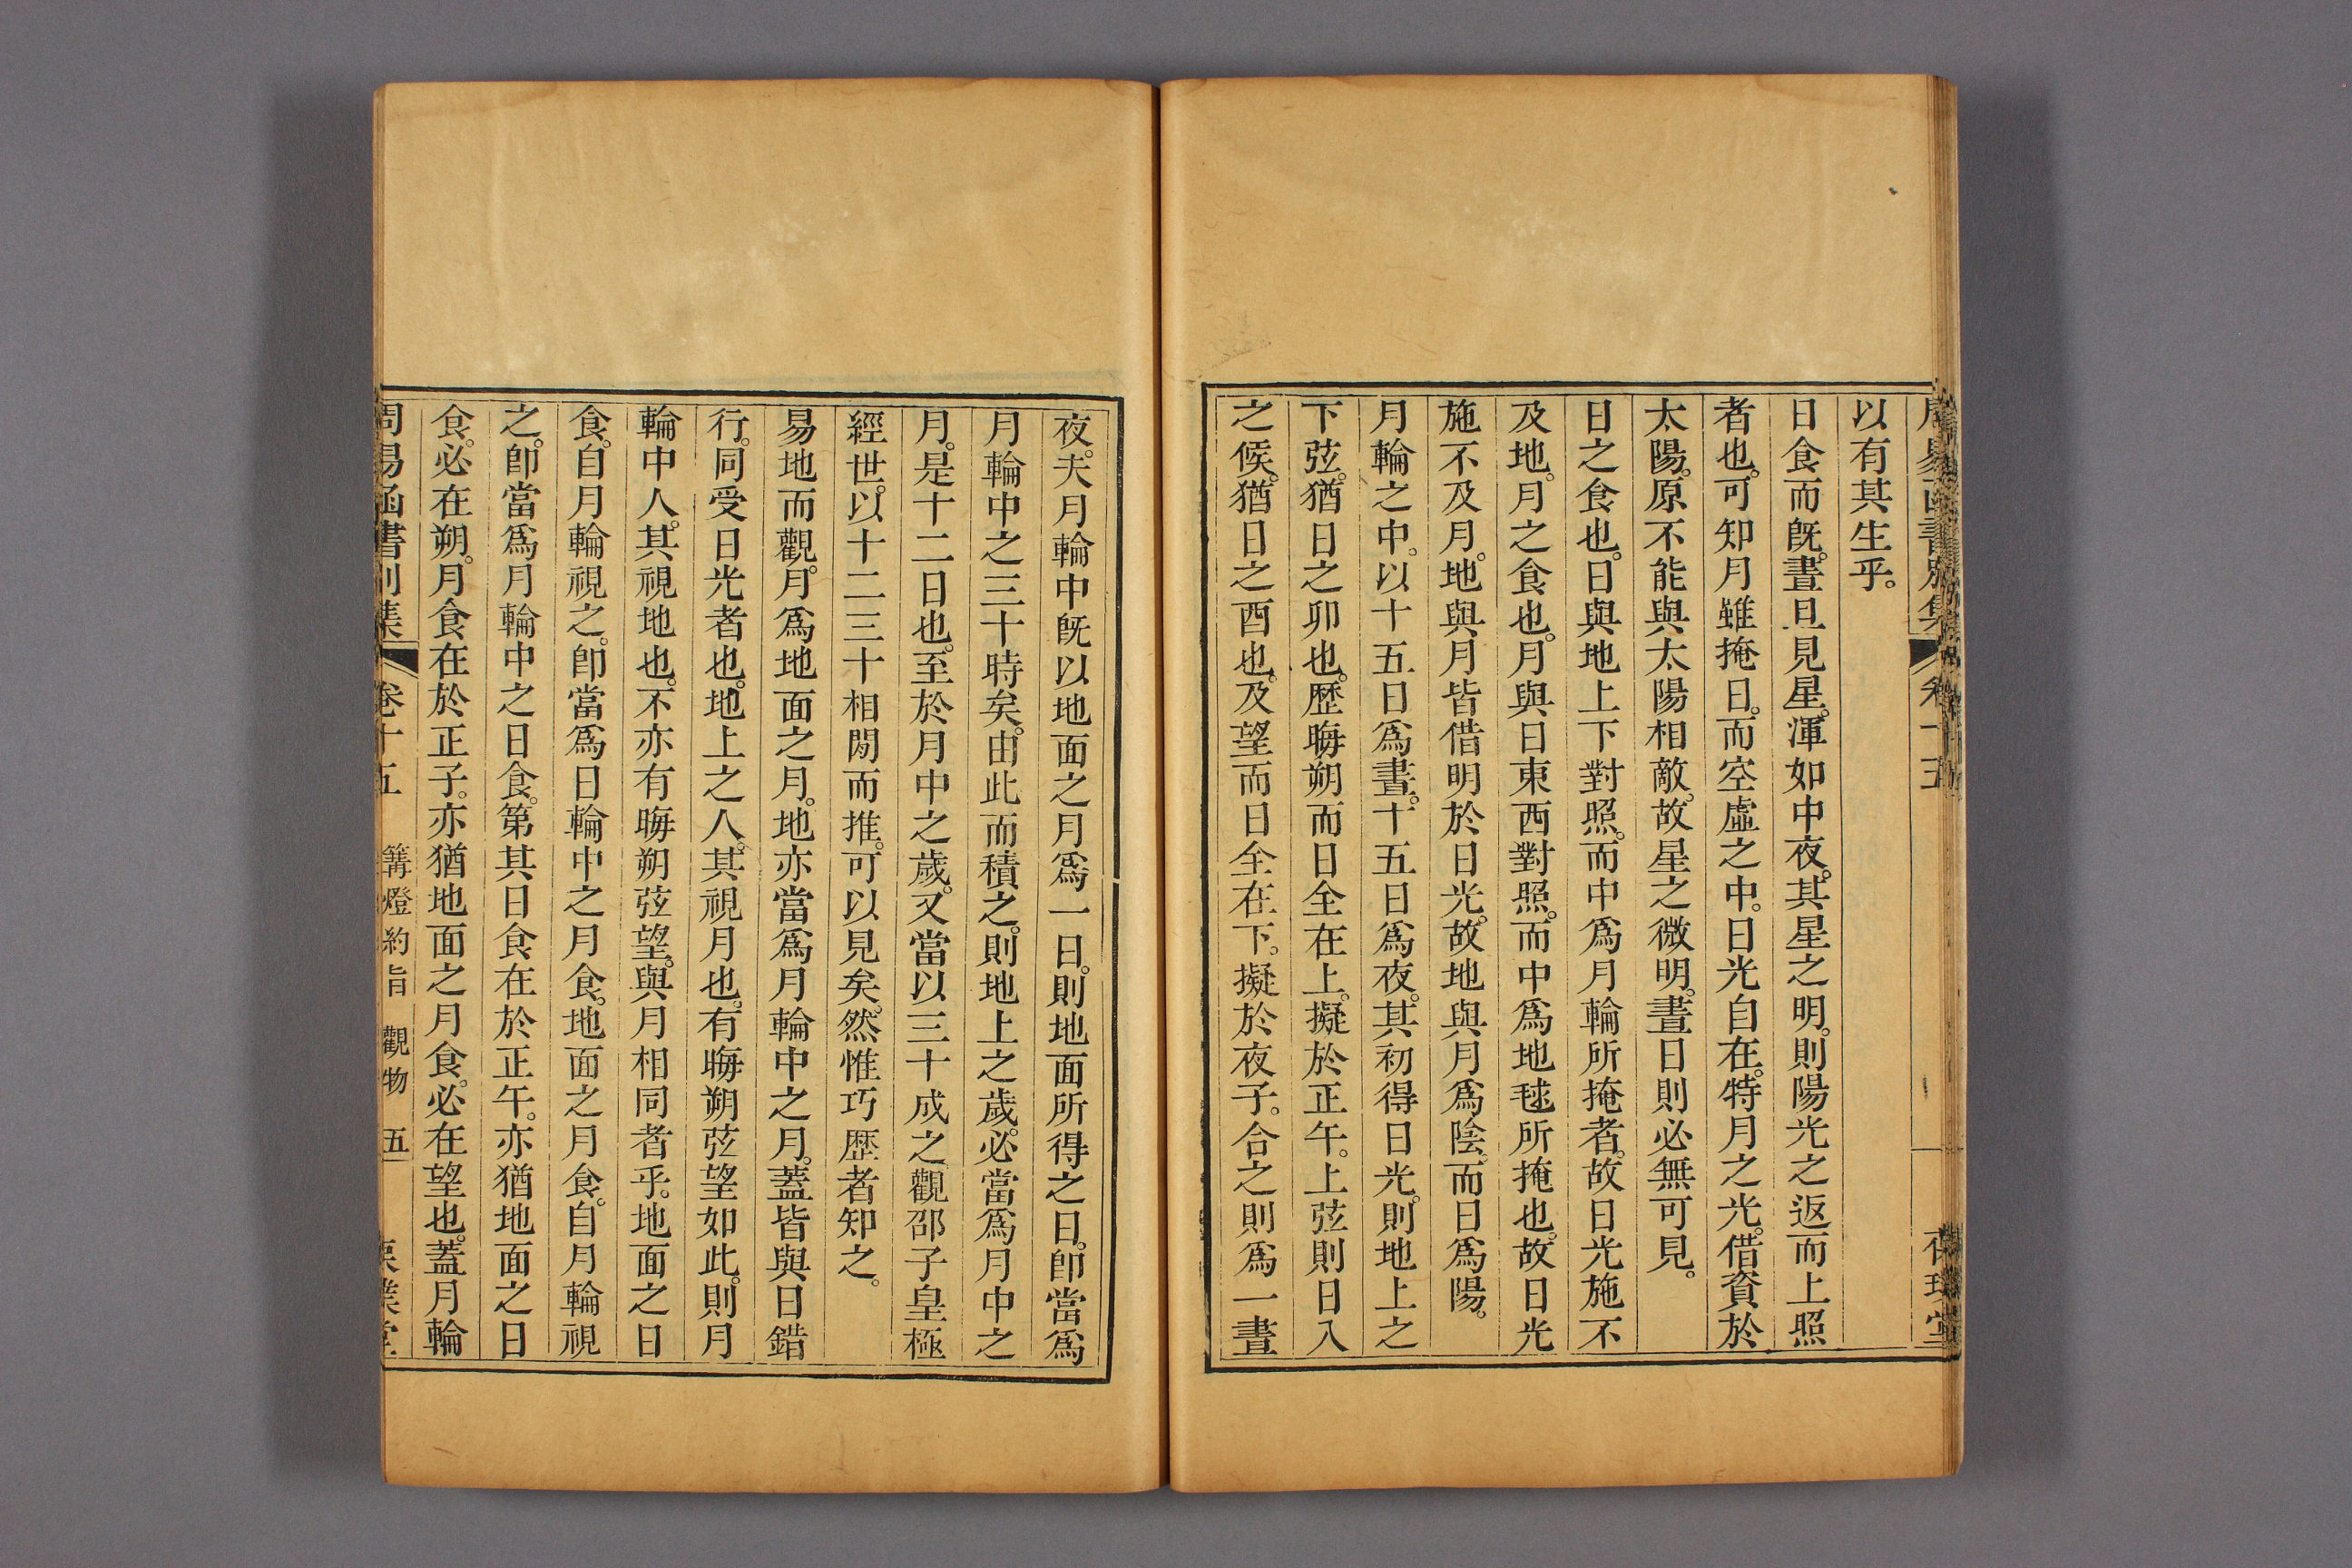 以有其生乎。
日食而旣。晝旦見星。渾如中夜。其星之明。則陽光之返而上照
者也。可知月雖掩日。而空虛之中。日光自在。特月之光。借資於
太陽。原不能與太陽相敵。故星之微明。晝日則必無可見。
日之食也。日與地上下對照。而中爲月輪所掩者。故日光施不
及地。月之食也。月與日東西對照。而中爲地毬所掩也。故日光
施不及月。地與月皆借明於日光。故地與月爲陰。而日爲陽。
月輪之中。以十五日爲晝。十五日爲夜。其初得日光。則地上之
下弦。猶日之卯也。歷晦朔而日全在上。擬於正午。上弦則日入
之候。猶日之酉也。及望而日全在下。擬於夜子。合之則爲一晝
夜。夫月輪中旣以地面之月爲一日。則地面所得之日。卽當爲
月輪中之三十時矣。由此而積之。則地上之歲。必當爲月中之
月。是十二日也。至於月中之歲。又當以三十成之觀邵子皇極
經世。以十二三十相閒而推。可以見矣。然惟巧歷者知之。
易地而觀。月爲地面之月。地亦當爲月輪中之月。蓋皆與日錯
行。同受日光者也。地上之人。其視月也。有晦朔弦望如此。則月
輪中人。其視地也。不亦有晦朔弦望。與月相同者乎。地面之日
食。自月輪視之。卽當爲日輪中之月食。地面之月食。自月輪視
之。卽當爲月輪中之日食。第其日食在於正午。亦猶地面之日
食。必在朔。月食在於正子。亦猶地面之月食。必在望也。蓋月輪
周易函書別集 卷十五 篝燈約旨 觀物 五